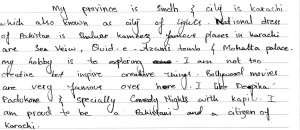 My province is Sindh & city is karachi
which also known as city of lights. National dress
of Pakistan is Shalwar kameez famous places in karachi
are Sea Veiw, Quid-e-Azams tomb & Mohatta palace.
my hobby is to exploring I am not too
creative but inspire creative things. Bollywood movies
are very famous over here. I like Deepika
Padukone & specially Comedy Nights with kapil. I
am proud to be a Pakistani and a citizen of
Karachi.